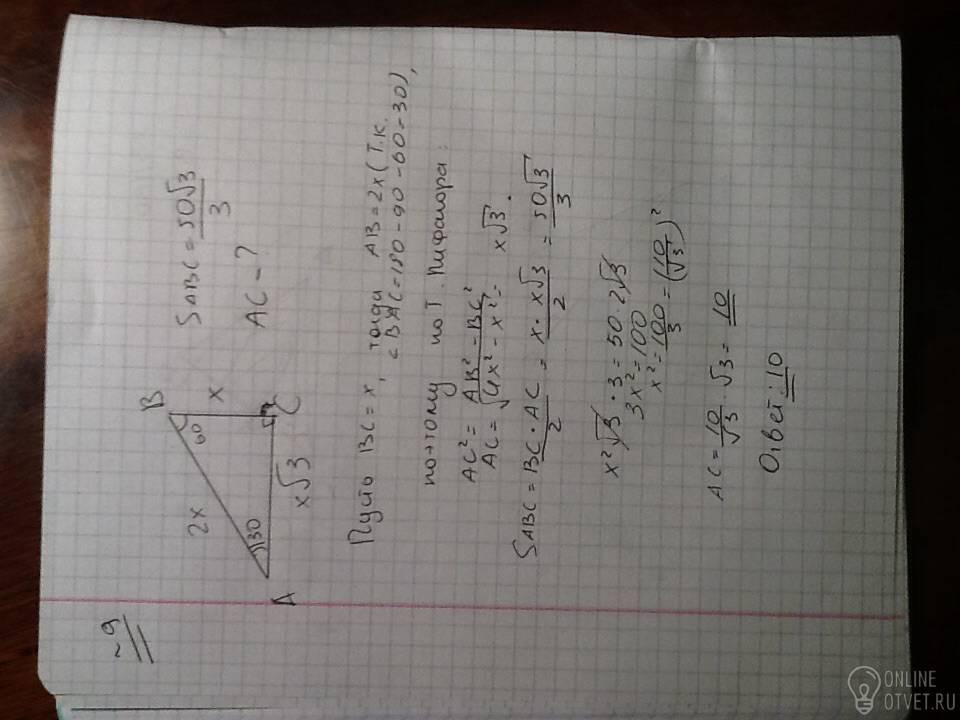 ~9
B
60
2x
x
30
A
x√3
C
S ABC = 50√3/3
AC - ?
Пусть BC = x, тогда AB = 2x (т.к.
∠BAC = 180 - 90 - 60 = 30),
поэтому по т. Пифагора:
AC² = AB² - BC²
AC = √4x² - x² = x√3.
S ABC = BC · AC/2 = x · x√3/2 = 50√3/3
x²√3 · 3 = 50 · 2√3
3x² = 100
x² = 100/3 = (10/√3)²
AC = 10/√3 · √3 = 10
Ответ: 10
ONLINE
OTVET.RU